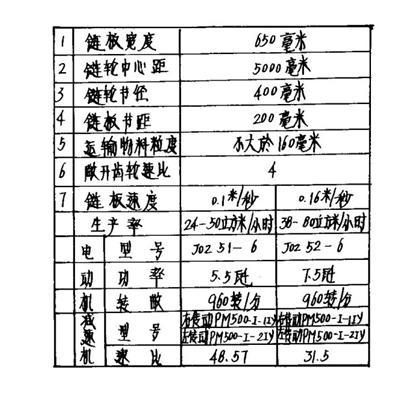 1 链板宽度 650毫米
2 链轮中心距 5000毫米
3 链轮节径 400毫米
4 链板节距 200毫米
5 运输物料粒度 不大於160毫米
6 敞开齿轮速比 4
7 链板速度 0.1米/秒 0.16米/秒
生产率 24-50立方米/小时 38-80立方米/小时
电动机 型号 JO2 51-6 JO2 52-6
功率 5.5瓩 7.5瓩
转数 960转/分 960转/分
减速机 型号 右传动PM500-I-1ZY 右传动PM500-I-1ZY
左传动PM500-I-2ZY 左传动PM500-I-2ZY
速比 48.57 31.5